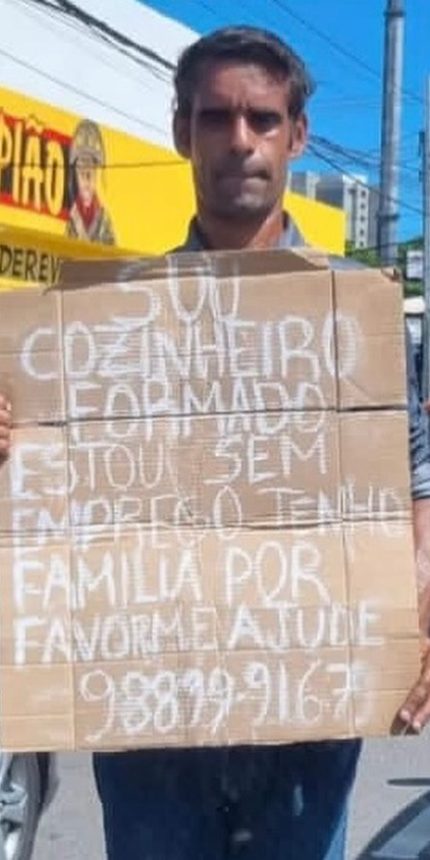 PIÃO
DEREV
SOU
COZINHEIRO
FORMADO
ESTOU SEM
EMPREGO TENHO
FAMILIA POR
FAVOR ME AJUDE
98899-9167